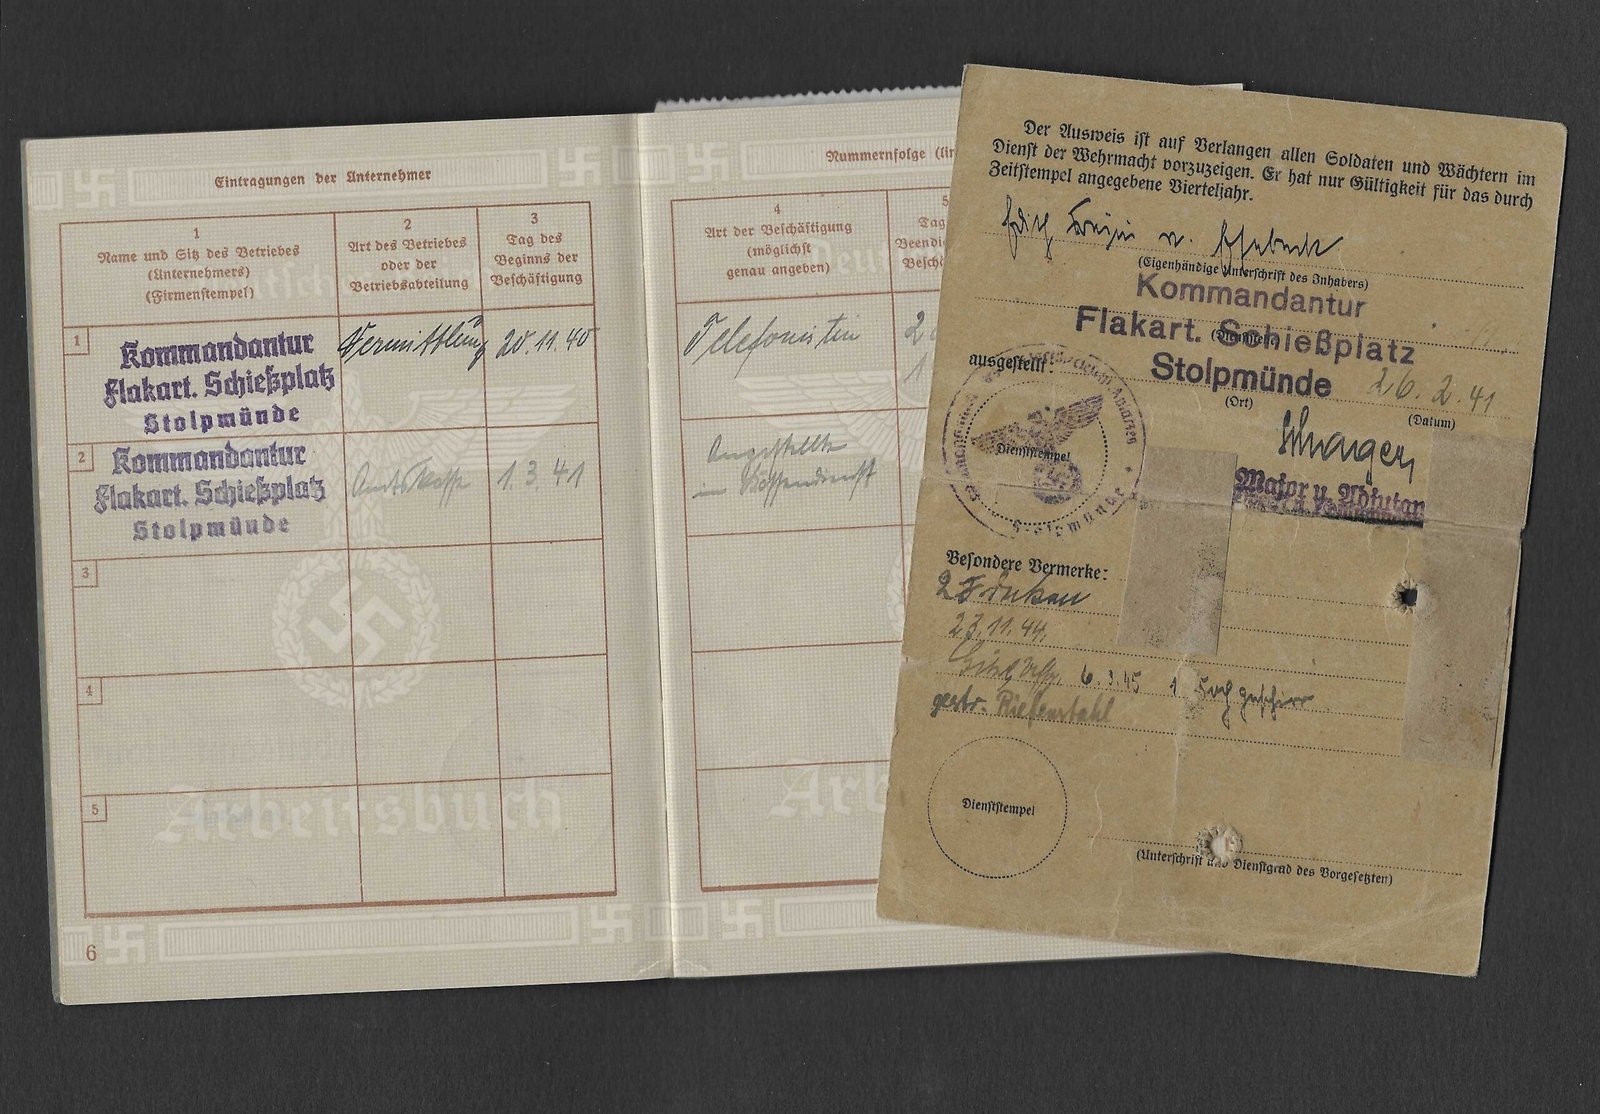 Eintragungen der Unternehmer
1
Name und Sitz des Betriebes
(Unternehmers)
(Firmenstempel)
2
Art des Betriebes
oder der
Betriebsabteilung
3
Tag des
Beginns der
Beschäftigung
1
Kommandantur
Flakart. Schießplatz
Stolpmünde
Vermittlung
20.11.40
2
Kommandantur
Flakart. Schießplatz
Stolpmünde
Amtskasse
1.3.41
3
4
5
Arbeitsbuch
6
Nummernfolge
4
Art der Beschäftigung
(möglichst
genau angeben)
5
Telefonistin
Angestellte
im Kassendienst
Der Ausweis ist auf Verlangen allen Soldaten und Wächtern im
Dienst der Wehrmacht vorzuzeigen. Er hat nur Gültigkeit für das durch
Zeitstempel angegebene Vierteljahr.
(Eigenhändige Unterschrift des Inhabers)
Kommandantur
Flakart. Schießplatz
(Dienststelle)
ausgestellt:
Stolpmünde 26.2.41
(Ort)
(Datum)
Dienststempel
Stolpmünde
Major u. Adjutan
Besondere Vermerke:
23.11.44.
6.3.45 1 Kochgeschirr
gestr. Riefenstahl
Dienststempel
(Unterschrift und Dienstgrad des Vorgesetzten)